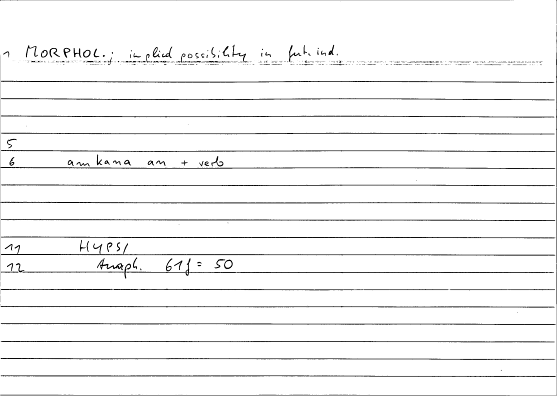 1 MORPHOL.; implied possibility in fut. ind.
5
6 am kama am + verb
11 HYPS/
12 Anaph. 61f = 50